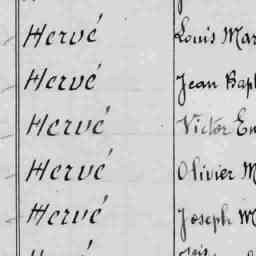 Hervé Louis Mar
Hervé Jean Bap
Hervé Victor Em
Hervé Olivier M
Hervé Joseph M